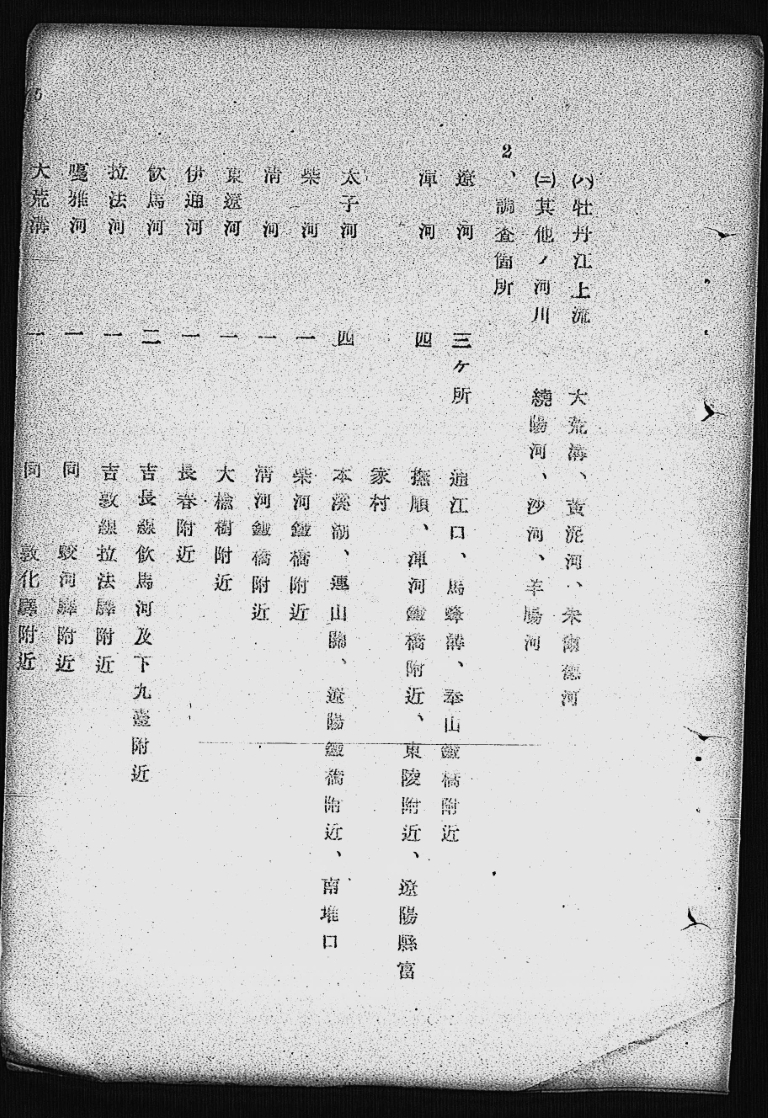 (ハ)牡丹江上流　大荒溝、黄泥河、朱爾德河
(ニ)其他ノ河川　繞陽河、沙河、羊腸河
2、調査箇所
遼河　三ケ所　通江口、馬蜂溝、奉山鐵橋附近
渾河　四　撫順、渾河鐵橋附近、東陵附近、遼陽縣富
家村
太子河　四　本溪湖、連山關、遼陽鐵橋附近、南堆口
柴河　一　柴河鐵橋附近
清河　一　清河鐵橋附近
東遼河　一　大楡樹附近
伊通河　一　長春附近
飮馬河　二　吉長線飮馬河及下九臺附近
拉法河　一　吉敦線拉法驛附近
嘎雅河　一　同　蛟河驛附近
大荒溝　一　同　敦化驛附近